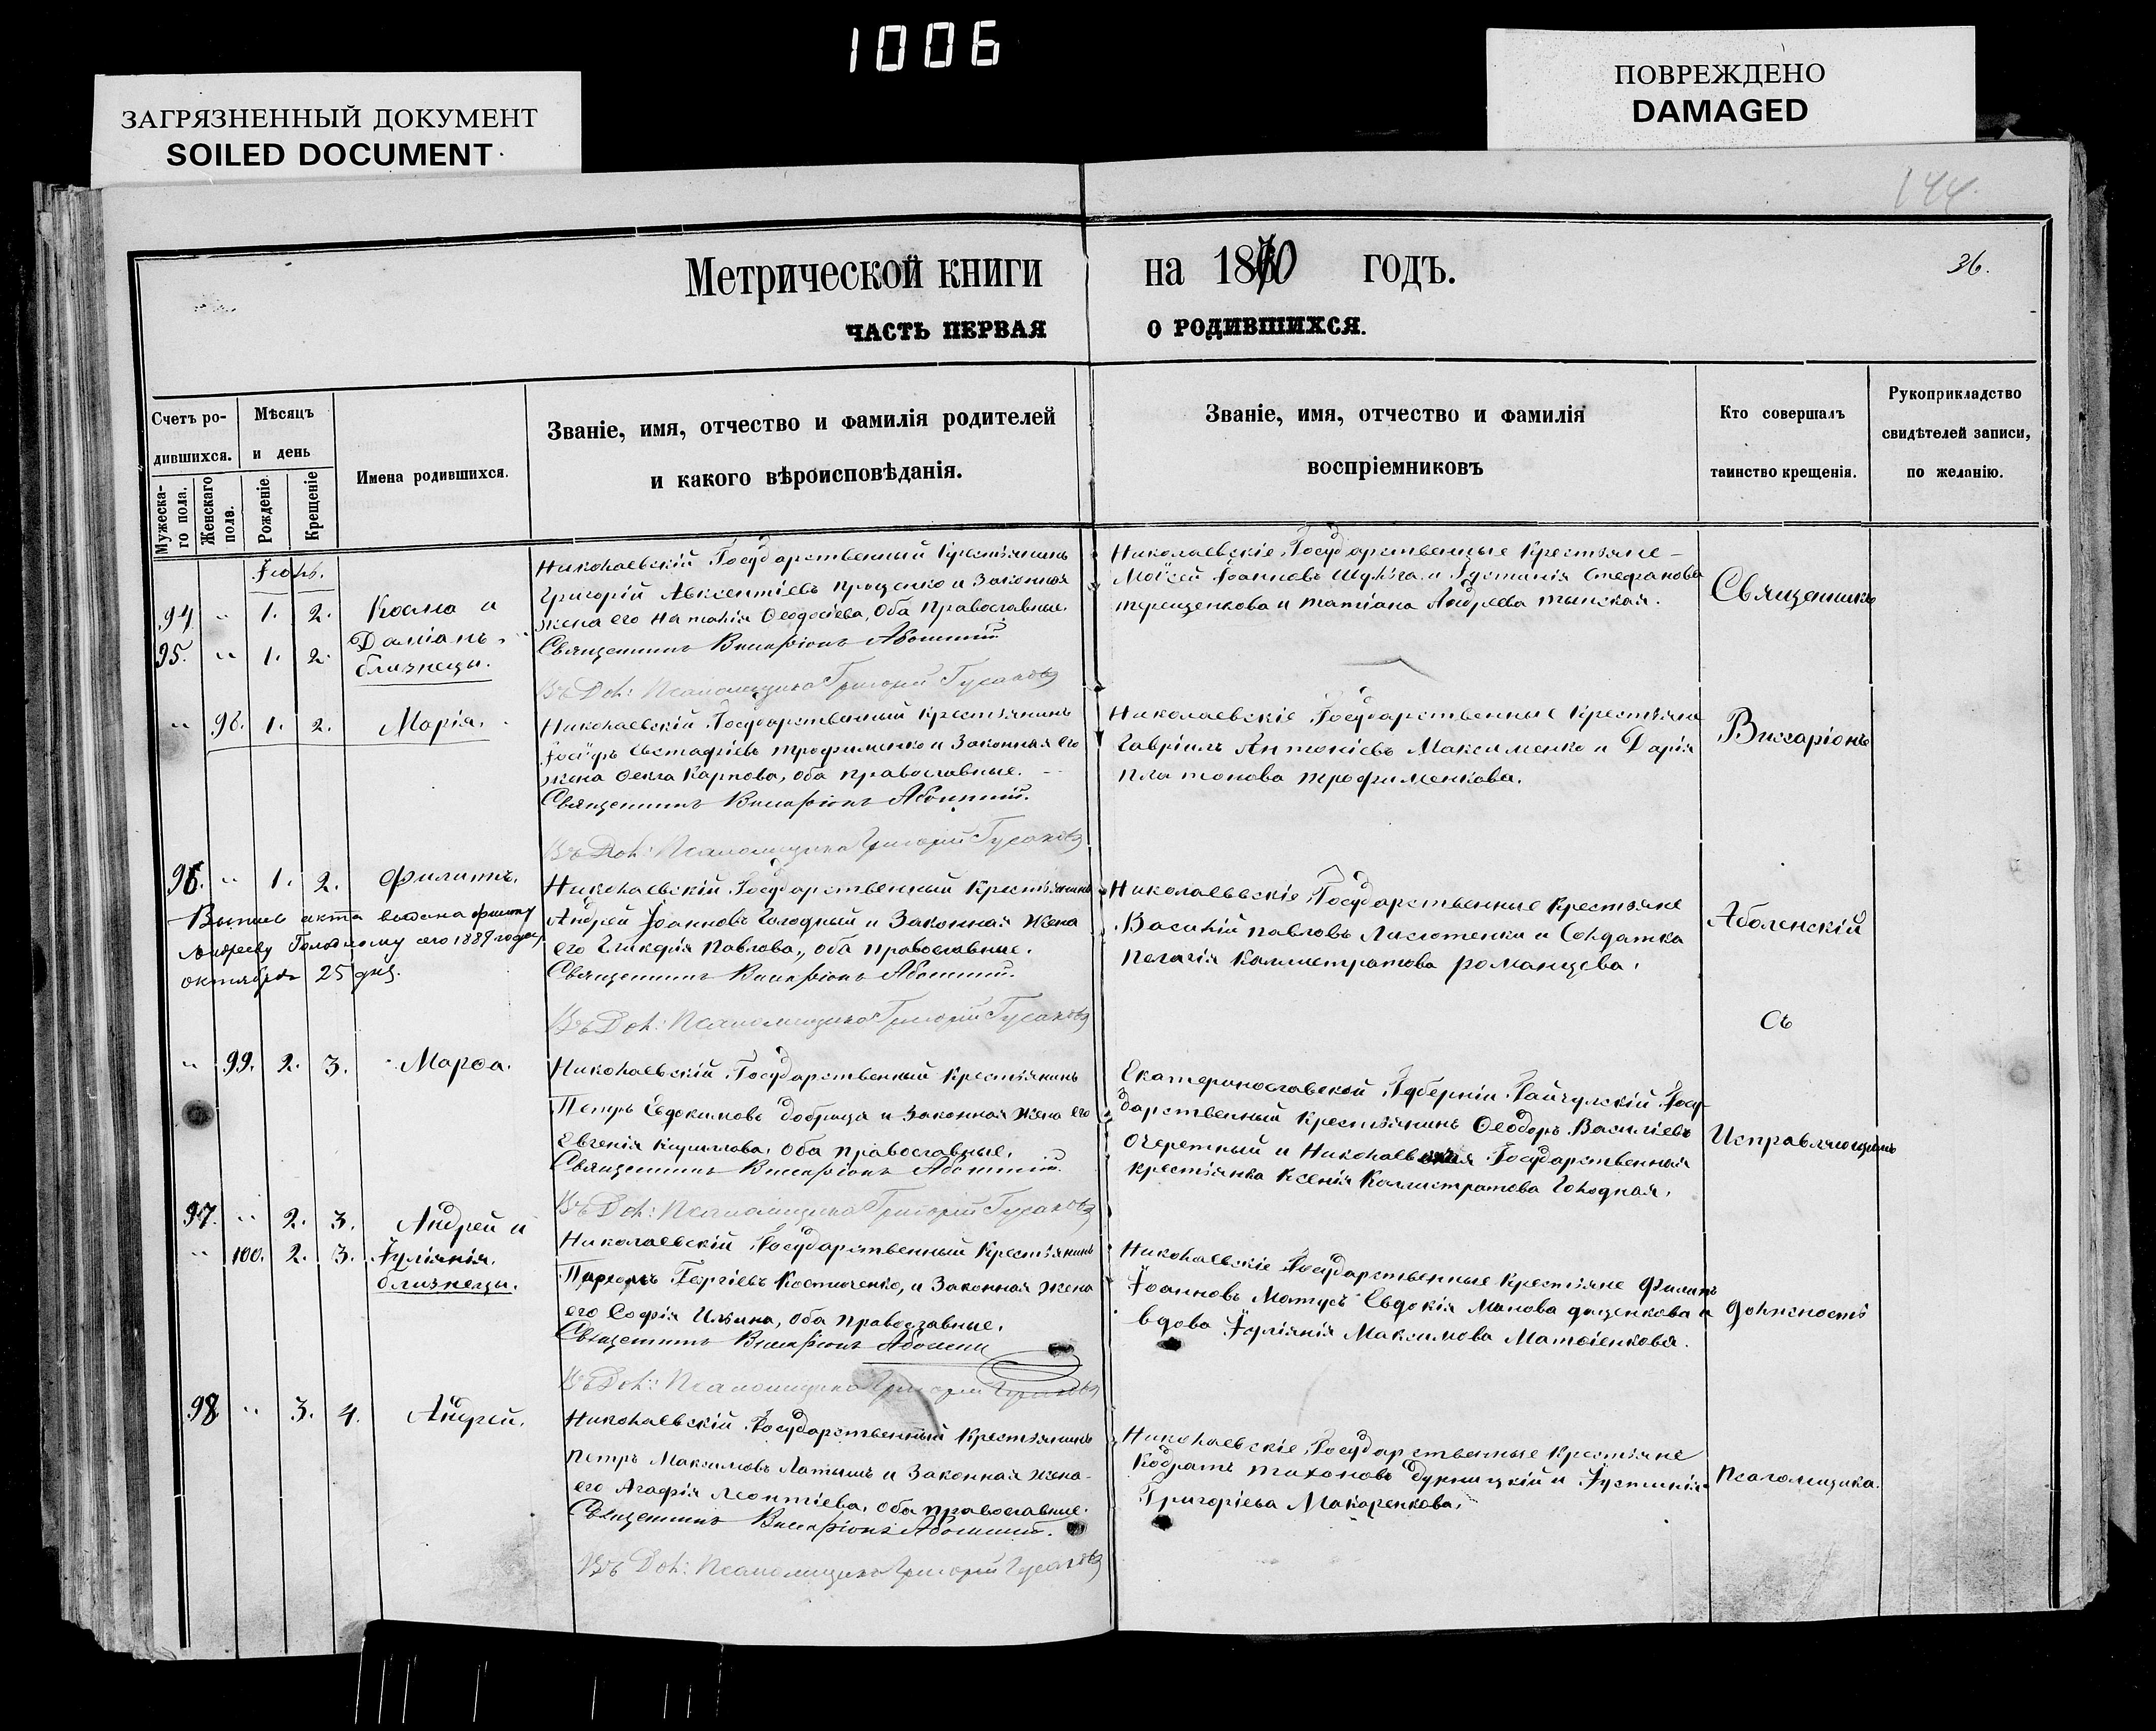 1006
ЗАГРЯЗНЕННЫЙ ДОКУМЕНТ
SOILED DOCUMENT
ПОВРЕЖДЕНО
DAMAGED
144.
36.
Метрической книги на 1870 годъ.
ЧАСТЬ ПЕРВАЯ О РОДИВШИХСЯ.
Счетъ ро-
дившихся.
Мужеска-
го пола.
Женскаго
пола.
Мѣсяцъ
и день
Рожденіе.
Крещеніе
Имена родившихся.
Званіе, имя, отчество и фамилія родителей
и какого вѣроисповѣданія.
Званіе, имя, отчество и фамилія
воспріемниковъ
Кто совершалъ
таинство крещенія.
Рукоприкладство
свидѣтелей записи,
по желанію.
94 " 1. 2. Косма и
95. " 1. 2. Даміанъ
близнецы.
Николаевскій Государственный Крестьянинъ
Григорій Авксентіевъ Проценко и Законная
жена его Наталія Ѳеодосіева, Оба Православные.
Священникъ Виссаріонъ Аболенскій
Въ Дол: Псаломщика Григорій Гусаковъ
Николаевскіе Государственные Крестьяне
Моѵсей Іоанновъ Шульга и Іустинія Стефанова
терещенкова и татіана Андреева тынская.
Священникъ
" 96. 1. 2. Марія.
Николаевскій Государственный Крестьянинъ
Іосифъ Евстафіевъ трофименко и Законная его
жена Ѳекла Карпова, оба православные.
Священникъ Виссаріонъ Аболенскій.
Въ Дол: Псаломщика Григорій Гусаковъ
Николаевскіе Государственные Крестьяне
Гавріилъ Антоніевъ Максименко и Дарія
платонова трофименкова.
Виссаріонъ
96. " 1. 2. Филиппъ.
Выпись акта выдана Филиппу
Андрееву Голодному сего 1887 года
октября 25 дня.
Николаевскій Государственный Крестьянинъ
Андрей Іоанновъ Голодный и Законная Жена
его Гликерія Павлова, оба православные.
Священникъ Виссаріонъ Аболенскій.
Въ Дол: Псаломщика Григорій Гусаковъ
Николаевскіе Государственные Крестьяне
Василій павловъ Лисютенко и Солдатка
Пелагія Каллистратова романцева.
Аболенскій
Съ
" 99. 2. 3. Марѳа.
Николаевскій Государственный Крестьянинъ
Петръ Евдокимовъ Добрица и Законная Жена его
Евгенія Кириллова, Оба православные.
Священникъ Виссаріонъ Аболенскій.
Въ Дол: Псаломщика Григорій Гусаковъ
Екатеринославской Губерніи Гайчулскій Госу-
дарственный Крестьянинъ Ѳеодоръ Василіевъ
Очеретный и Николаевская Государственная
крестьянка Ксенія Каллистратова Голодная.
Исправляющимъ
97. " 2. 3. Андрей и
" 100. 2. 3. Іуліанія.
близнецы.
Николаевскій Государственный Крестьянинъ
Георгіевъ Костюченко, и Законная жена
его Софія Ильина, оба православные.
Священникъ Виссаріонъ Аболенскій
Въ Дол: Псаломщика Григорій Гусаковъ
Николаевскіе Государственные Крестьяне Филиппъ
Іоанновъ Матусъ Евдокія и
вдова Іуліянія Максимова Матвіенкова.
должность
98 " 3. 4. Андрей.
Николаевскій Государственный Крестьянинъ
Петръ Максимовъ Латышъ и Законная жена
его Агафія Леонтіева, оба православные.
Священникъ Виссаріонъ Аболенскій.
Въ Дол: Псаломщика Григорій Гусаковъ
Николаевскіе Государственные Крестьяне
Кодратъ тихоновъ и Іустинія
Григоріева Макаренкова.
Псаломщика.